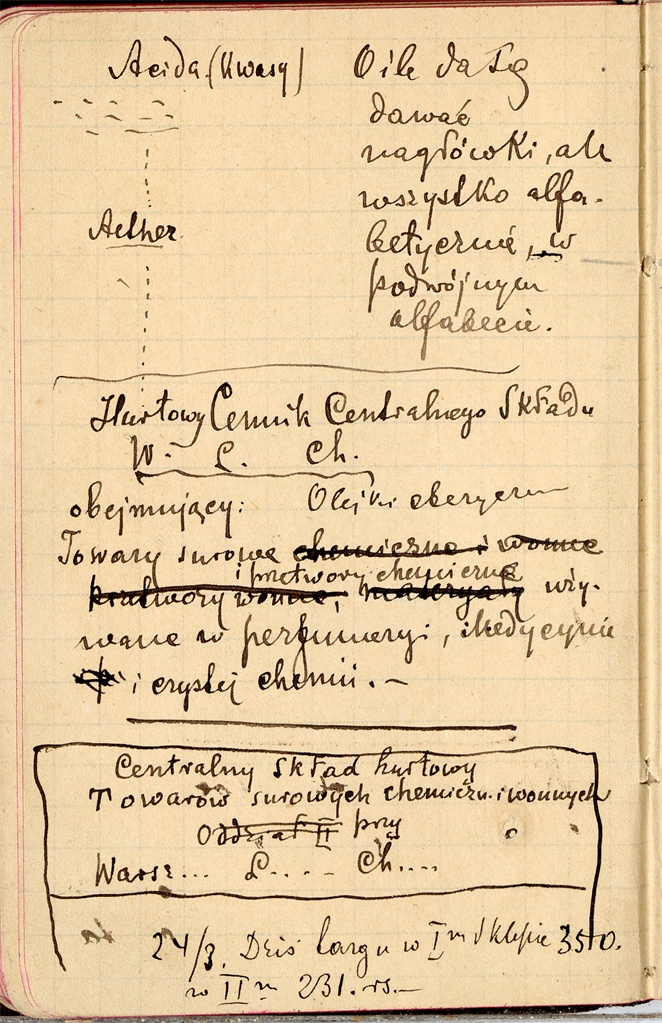 Acida (Kwasy)
Aether
O ile da się
dawać
nagłówki, ale
wszystko alfa-
betycznie, w
podwójnym
alfabecie.
Hurtowy Cennik Centralnego Składu
W. L. Ch.
obejmujący: Olejki
Towary surowe chemiczne i wonne
i przetwory chemiczne
przetwory wonne, materyały uży-
wane w perfumeryi, Medycynie
i czystej chemii. –
Centralny Skład hurtowy
Towarów surowych chemiczn. i wonnych
Oddział II przy
Warsz... L.... Ch....
24/3. Dziś targu w I m Sklepie 350.
w II m 231. rs. –